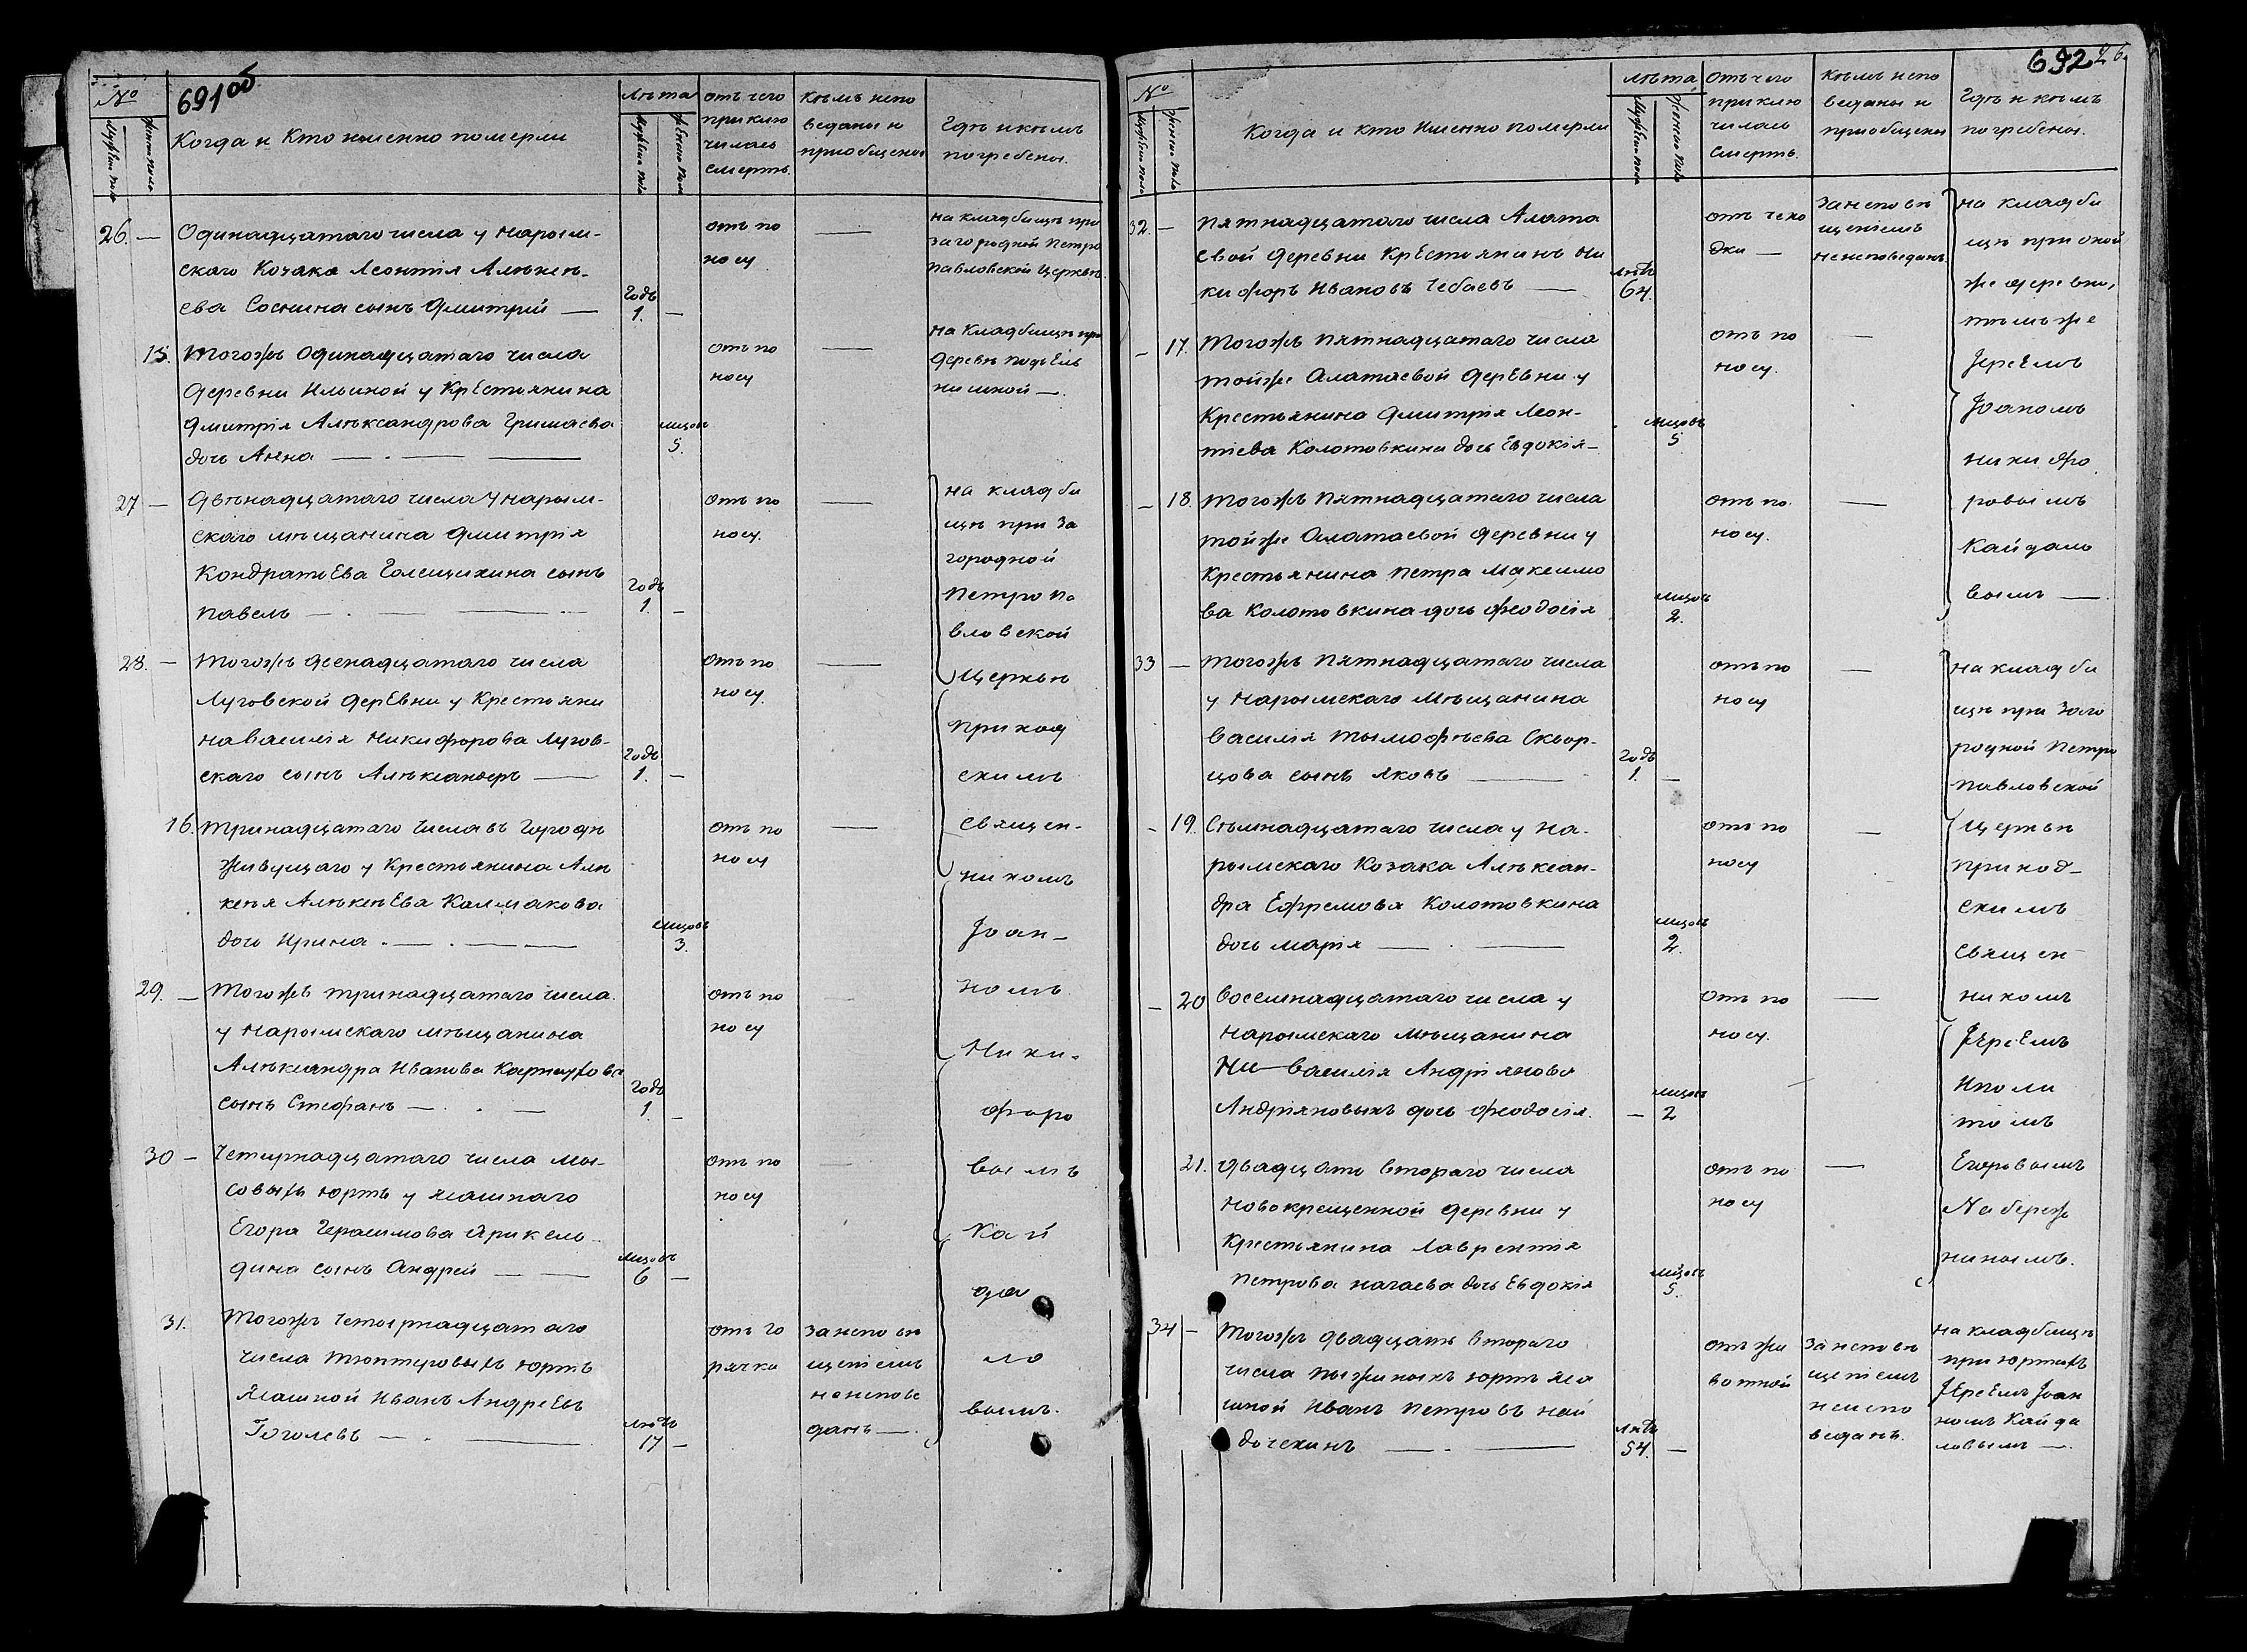 691об
№
Мужеска пола
Женска пола
Когда и Кто именно померли
Лѣта
Мужеска пола
Женска пола
отъ чего
приклю
чилась
смерть.
Кѣмъ испо
веданы и
приобщены
Гдѣ и кѣмъ
погребены.
26. —
Одинадцатаго числа у нарым-
скаго Козака Леонтія Алѣкѣ-
ева Соснина сынъ Дмитрій —
Годъ
1. —
отъ по
носу
—
на кладбищѣ при
загородной Петро
павловской Церквѣ
15.
Тогожъ Одинадцатаго числа
деревни Ильиной у Крестьянина
Дмитрія Алѣксандрова Гришаева
дочь Анна — . — —
мѣцовъ
5.
отъ по
носу
—
на Кладбищѣ при
деревѣ подъель
нишной —.
27 —
Двѣнадцатаго числа у нарым-
скаго мѣщанина Дмитрія
Кондратьева Голещихина сынъ
павелъ — . — — —
Годъ
1. —
отъ по
носу.
—
на кладби
щѣ при за
городной
Петропа
вловской
Церквѣ
приход
скимъ
священ-
никомъ
Іоан-
номъ
Ники-
форо
вымъ
Кай
да
ло
вымъ.
28. —
Тогожъ двенадцатаго числа
Луговской деревни у Крестьяни
на василія Никифорова Лугов-
скаго сынъ Алѣксандръ —
Годъ
1. —
отъ по
носу.
—
16.
Тринадцатаго числа въ Городѣ
живущаго у Крестьянина Алѣ
кѣя Алѣкѣева Калмакова
дочь Ирина . — . — —
мѣцовъ
3.
отъ по
носу
—
29. —
Тогожъ тринадцатаго числа
у нарымскаго мѣщанина
Алѣксандра Иванова Карнаухова
сынъ Стефанъ — . . —
Годъ
1. —
отъ по
носу
—
30 —
Четырнадцатаго числа мы-
совыхъ юртъ у ясашнаго
Егора Герасимова Арикель-
дина сынъ Андрей — —
мѣцовъ
6 —
отъ по
носу
—
31.
Тогожъ четырнадцатаго
числа тюптуровыхъ юртъ
Ясашной Иванъ Андреевъ
Гоголевъ — . —
лѣтъ
17 —
отъ го
рячка
за неповѣ
щеніемъ
неисповѣ
данъ —.
692
26.
№
Мужеска пола
Женска пола
Когда и кто Именно померли
лѣта
Мужеска пола
Женска пола
отъ чего
приклю
чилась
смерть.
Кѣмъ испо
веданы и
приобщены
Гдѣ и кѣмъ
погребены.
32. —
пятнадцатаго числа Алата
евой деревни Крестьянинъ Ни
кифоръ Ивановъ Чебаевъ —
лѣтъ
64.
отъ чехо
дки —
за неповѣ
щеніемъ
неисповеданъ
на кладби
щѣ при оной
же деревни,
тѣмъ же
Іереемъ
Іоаномъ
Никифо
ровымъ
Кайдало
вымъ —
— 17.
Тогожъ пятнадцатаго числа
тойже Алатаевой деревни у
Крестьянина Дмитрія Леон-
тіева Колотовкина дочь Евдокія —
мѣцовъ
5
отъ по
носу.
—
— 18.
Тогожъ пятнадцатаго числа
тойже Алатаевой деревни у
Крестьянина Петра Максимо
ва Колотовкина дочь Феодосія
мѣцовъ
2.
отъ по
носу.
—
33 —
Тогожъ пятнадцатаго числа
у Нарымскаго Мѣщанина
василія тымофѣева Сквор-
цова сынъ Яковъ —
Годъ
1. —
отъ по
носу
—
на кладби
щѣ при заго
родной Петро
павловской
Церквѣ
приход-
скимъ
священ-
никомъ
Іереемъ
Ипали
томъ
Егоровымъ
Набереж
нинымъ.
— 19.
Сѣмнадцатаго числа у на-
рымскаго Козака Алѣксан-
дра Ефремова Колотовкина
дочь марія — . —
мѣцовъ
2.
отъ по
носу
—
— 20
Восемнадцатаго числа у
нарымскаго мѣщанина
Ни василія Андріянова
Андріяновыхъ дочь феодосія.
— мѣцовъ
2
отъ по
носу.
—
21.
двадцать втораго числа
новокрещенной деревни у
Крестьянина Лаврентія
Петрова нагаева дочь Евдокія
мѣцовъ
5.
отъ по
носу
—
34 —
Тогожъ двадцать втораго
числа пыжиныхъ юртъ яса
шной Иванъ Петровъ най
дочекинъ — . —
лѣтъ
54. —
отъ жи
вотной
за неповѣ
щеніемъ
неиспо
веданъ.
на кладбищѣ
при юртахъ
Іереемъ Іоан
номъ Кайда
ловымъ —.